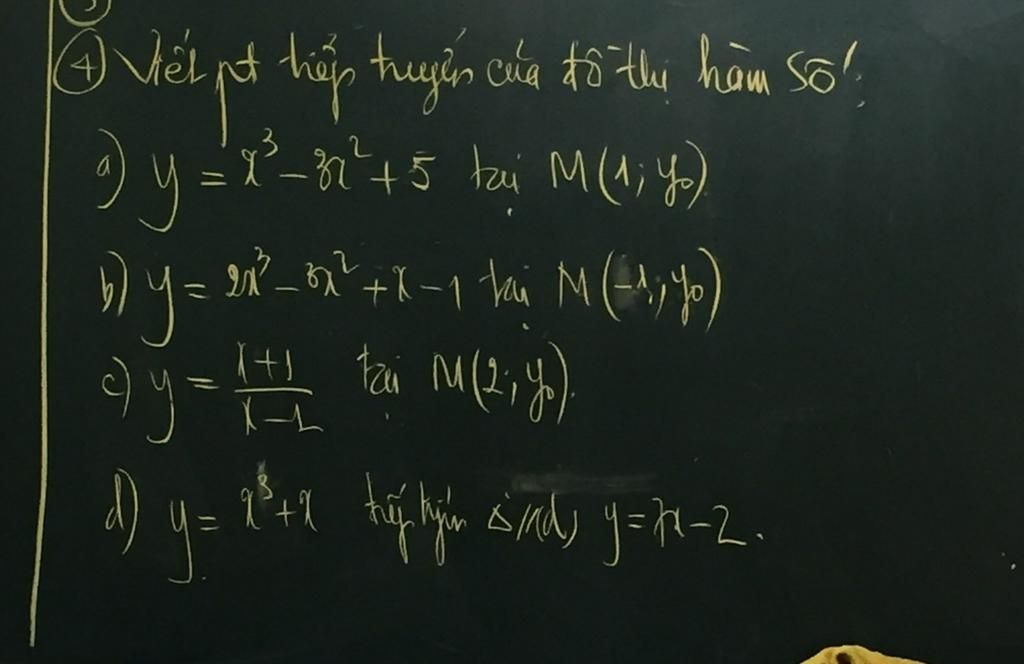 ④ Viết pt tiếp tuyến của đồ thị hàm số:
a) y = x³ - 3x² + 5 tại M(1; y₀)
b) y = 2x³ - 3x² + x - 1 tại M(-1; y₀)
c) y = (x+1)/(x-1) tại M(2; y₀).
d) y = x³ + x tiếp tuyến Δ // (d) y = 7x - 2.